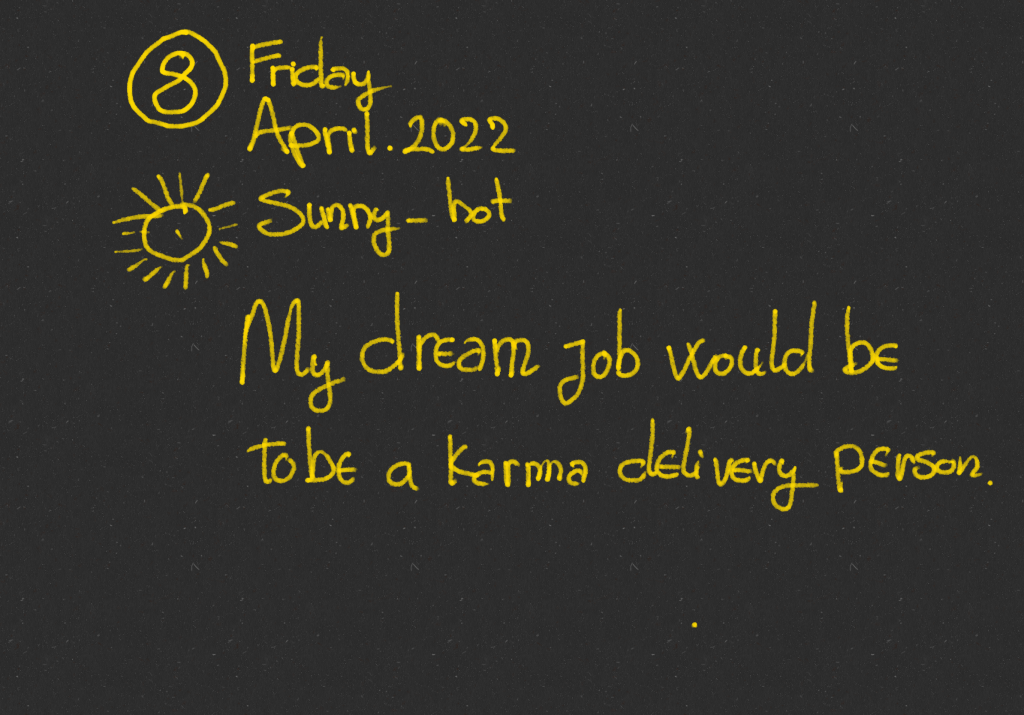 8 Friday
April.2022
Sunny - hot
My dream job would be
tobe a karma delivery person.